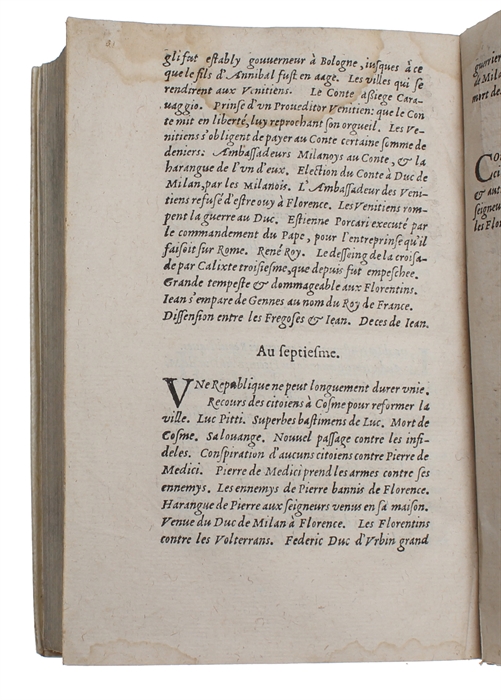 gli fut estably gouuerneur à Bologne, iusques à ce
que le fils d'Annibal fust en aage. Les villes qui se
rendirent aux Venitiens. Le Conte aßiege Cara-
uaggio. Prinse d'vn Proueditor Venitien: que le Con
te mit en liberté, luy reprochant son orgueil. Les Ve-
nitiens s'obligent de payer au Conte certaine somme de
deniers: Ambaſſadeurs Milanoys au Conte, & la
harangue de l'vn d'eux. Election du Conte à Duc de
Milan, par les Milanois. L'Ambaſſadeur des Veni-
tiens refusé d'estre ouy à Florence. Les Venitiens rom-
pent la guerre au Duc. Estienne Porcari executé par
le commandement du Pape, pour l'entreprinse qu'il
faisoit sur Rome. René Roy. Le desseing de la croisa-
de par Calixte troisiesme, que depuis fut empeschee.
Grande tempeste & dommageable aux Florentins.
Iean s'empare de Gennes au nom du Roy de France.
Dissension entre les Fregoses & Iean. Deces de Iean.
Au septiesme.
VNe Republique ne peut longuement durer vnie.
Recours des citoiens à Cosme pour reformer la
ville. Luc Pitti. Superbes bastimens de Luc. Mort de
Cosme. Salouange. Nouuel passage contre les infi-
deles. Conspiration d'aucuns citoiens contre Pierre de
Medici. Pierre de Medici prend les armes contre ses
ennemys. Les ennemys de Pierre bannis de Florence.
Harangue de Pierre aux seigneurs venus en sa maison.
Venue du Duc de Milan à Florence. Les Florentins
contre les Volterrans. Federic Duc d'Vrbin grand
guerrier
de Milan
mort de
Co
ci
& aut
seigneu
les Flor